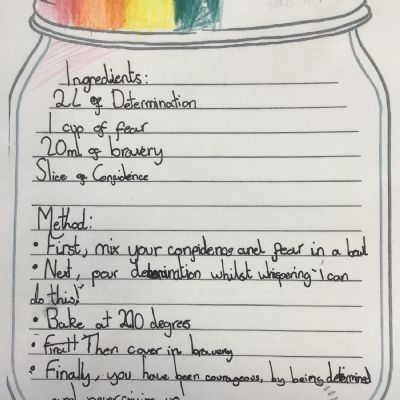 Ingredients:
2L of Determination
1 cup of fear
20ml of bravery
Slice of Confidence
Method:
• First, mix your confidence and fear in a bowl
• Next, pour determination whilst whispering "I can
do this!"
• Bake at 220 degrees
• Then cover in bravery
• Finally, you have been courageous, by being determined
and never giving up